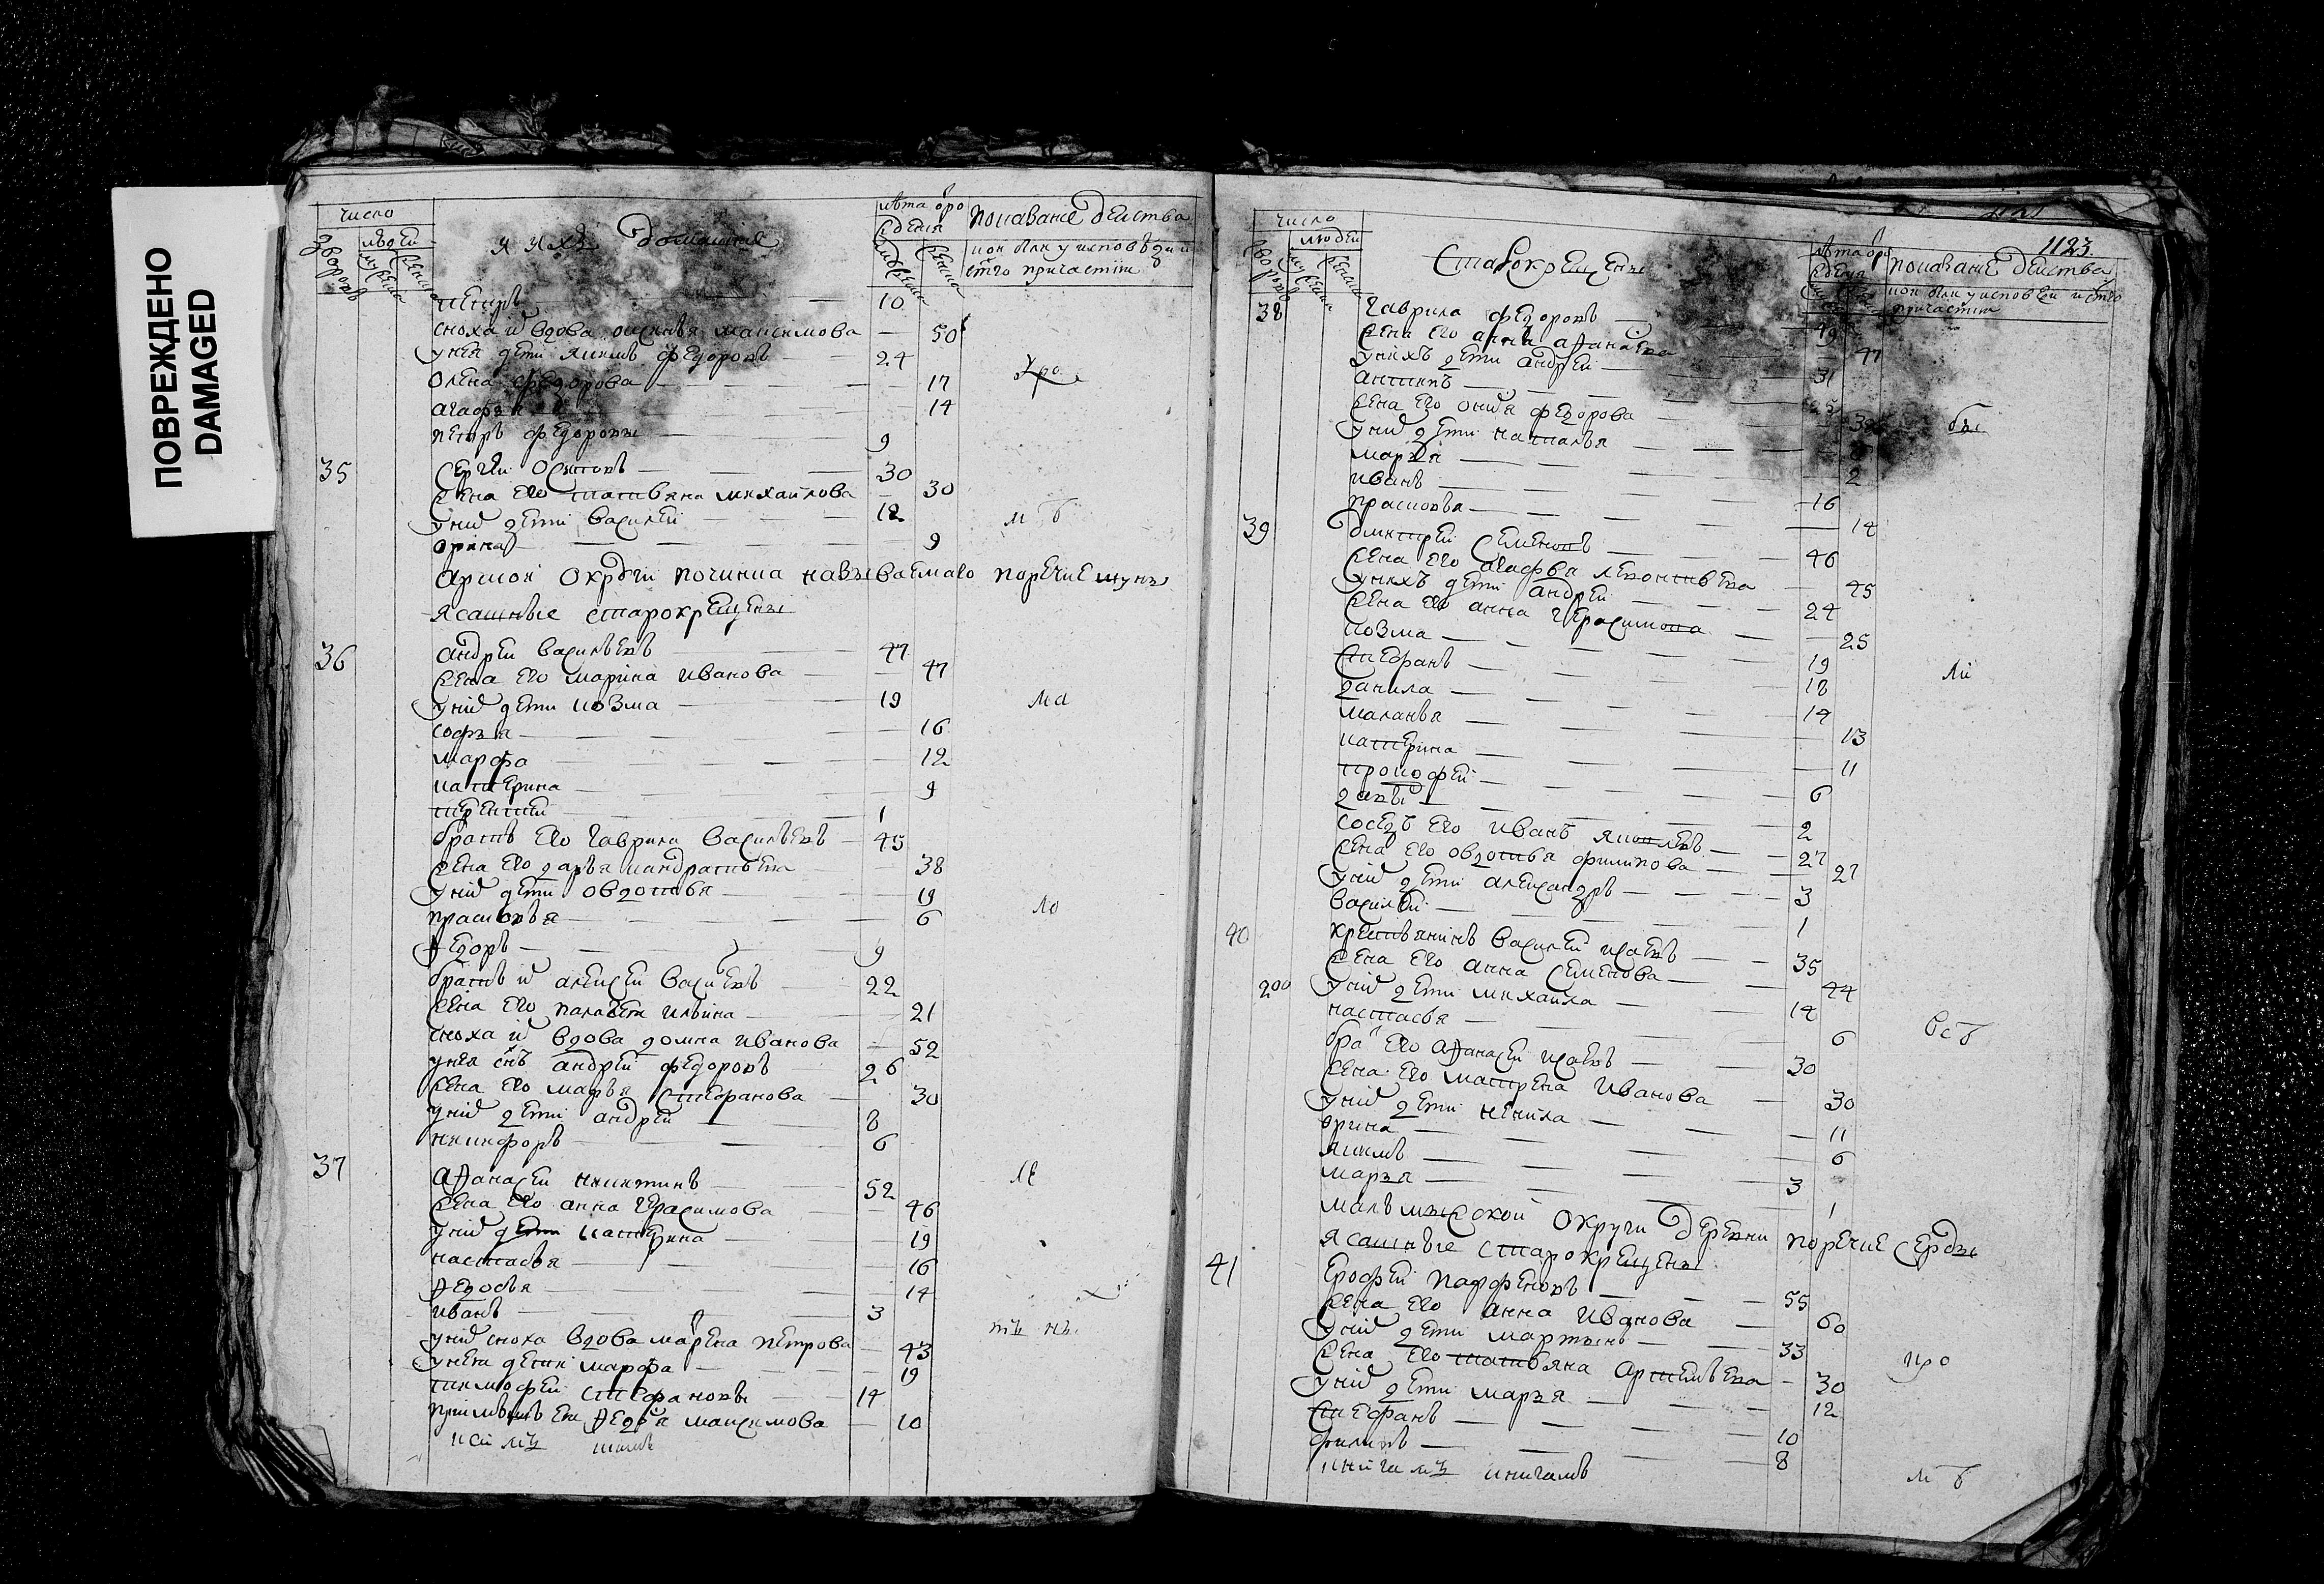 ПОВРЕЖДЕНО
DAMAGED
число
людей
и ихъ домашние
лѣта оро
ждения
показание действа
кои были у исповѣди и
стго причастия
петръ 10
сноха и вдова максимова 50
у нея дети якимъ федоровъ 24
олена федорова 17
агафья 14
петръ федоровы 9
35 сергѣй осиповъ 30
жена его татьяна михайлова 30
у них дети василей 12
орина 9
арской округи починка называемаго поречие
ясашные старокрещены
36 андрей васильевъ 47
жена его марина иванова 47
у них дети козма 19
софья 16
марфа 12
катерина 9
терентей 1
братъ его гаврила васильевъ 45
жена его дарья кандратьева 38
у них дети овдотья 19
прасковья 6
федоръ 9
братъ и алексей васильевъ 22
жена его палагея ильина 21
сноха их вдова домна иванова 52
у нея снъ андрей федоровъ 26
жена его марья стефанова 30
у них дети андрей 8
никифоръ 6
37 афанасей никитинъ 52
жена его анна герасимова 46
у них дети катерина 19
настасья 16
федосья 14
иванъ 3
у них сноха вдова марена петрова 43
у нея дети марфа 19
тимофей стефановы 14
максимова 10
1123
число
людей
старокрещены
лѣта оро
ждения
показание действа
кои были у исповеди и стго
причастия
38 гаврила федоровъ 49
жена его анна афанасьева 47
у нихъ дети андрей 31
антипъ
жена его федорова
у них дети наталья
марья 2
иванъ 16
прасковья 14
39 дмитрей семеновъ 46
жена его агафья леонтьева 45
у нихъ дети андрей 24
жена его анна герасимова 25
козма 19
стефанъ 18
данила 14
маланья 13
катерина 11
прокофей 6
2
соседъ его иванъ яковлевъ 27
жена его овдотья филипова 27
у них дети александръ 3
василей 1
40 крестьянинъ василей исаевъ 35
жена его анна семенова 44
200 у них дети михайла 14
настасья 6
бра его афанасей исаевъ 30
жена его матрена иванова 30
у них дети ненила 11
орина 6
якимъ 3
марья 1
малмыжской округи деревни поречие серды
ясашные старокрещены
41 ерофей парфеновъ 55
жена его анна иванова 60
у них дети мартынъ 33
жена его татьяна артемьева 30
у них дети марья 12
стефанъ 10
филипъ 8